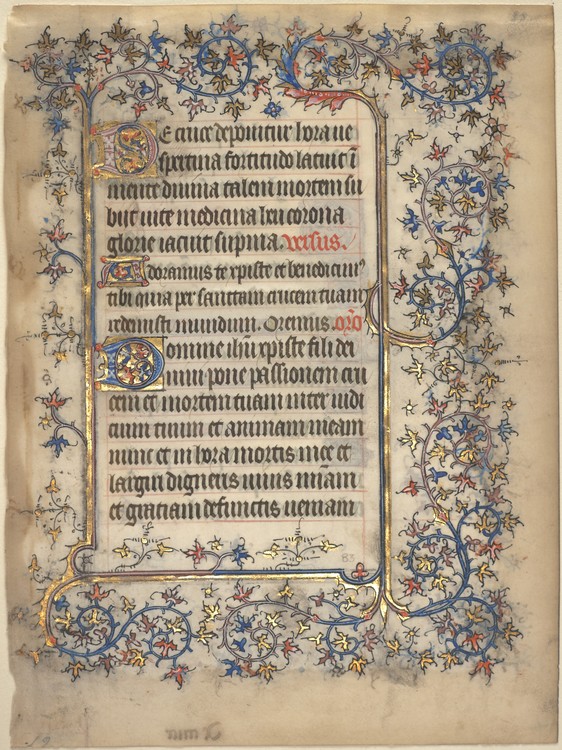 De cruce deponitur hora ue
spertina fortitudo latuit ī
mente diuina talem mortem su
biit uite medicina heu corona
glorie iacuit supina. Versus.
Adoramus te xpiste et benedicim⁹
tibi quia per sanctam crucem tuam
redemisti mundum. Oremus. orō
Domine ihū xpiste fili dei
uiui pone passionem cru
cem et mortem tuam inter iudi
cium tuum et animam meam
nunc et in hora mortis mee et
largiri digneris uiuis mīam
et gratiam defunctis ueniam
83